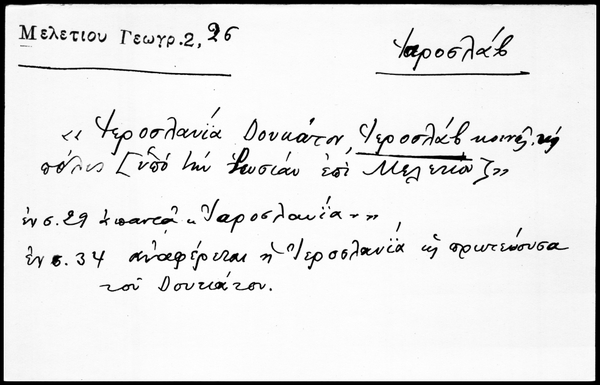 Μελετίου Γεωγρ. 2, 26
Ἰαροσλάβ
«Ἰεροσλανία Δουκάτον, Ἰεροσλάβ κοινῶς, καὶ
πόλις [ὑπό τὴν Ῥωσίαν ἐπὶ Μελετίου]»
ἐν σ. 29 ἀπαντᾶ «Ἰαροσλανία»,
ἐν σ. 34 ἀναφέρεται ἡ Ἰεροσλανία ὡς πρωτεύουσα
τοῦ Δουκάτου.